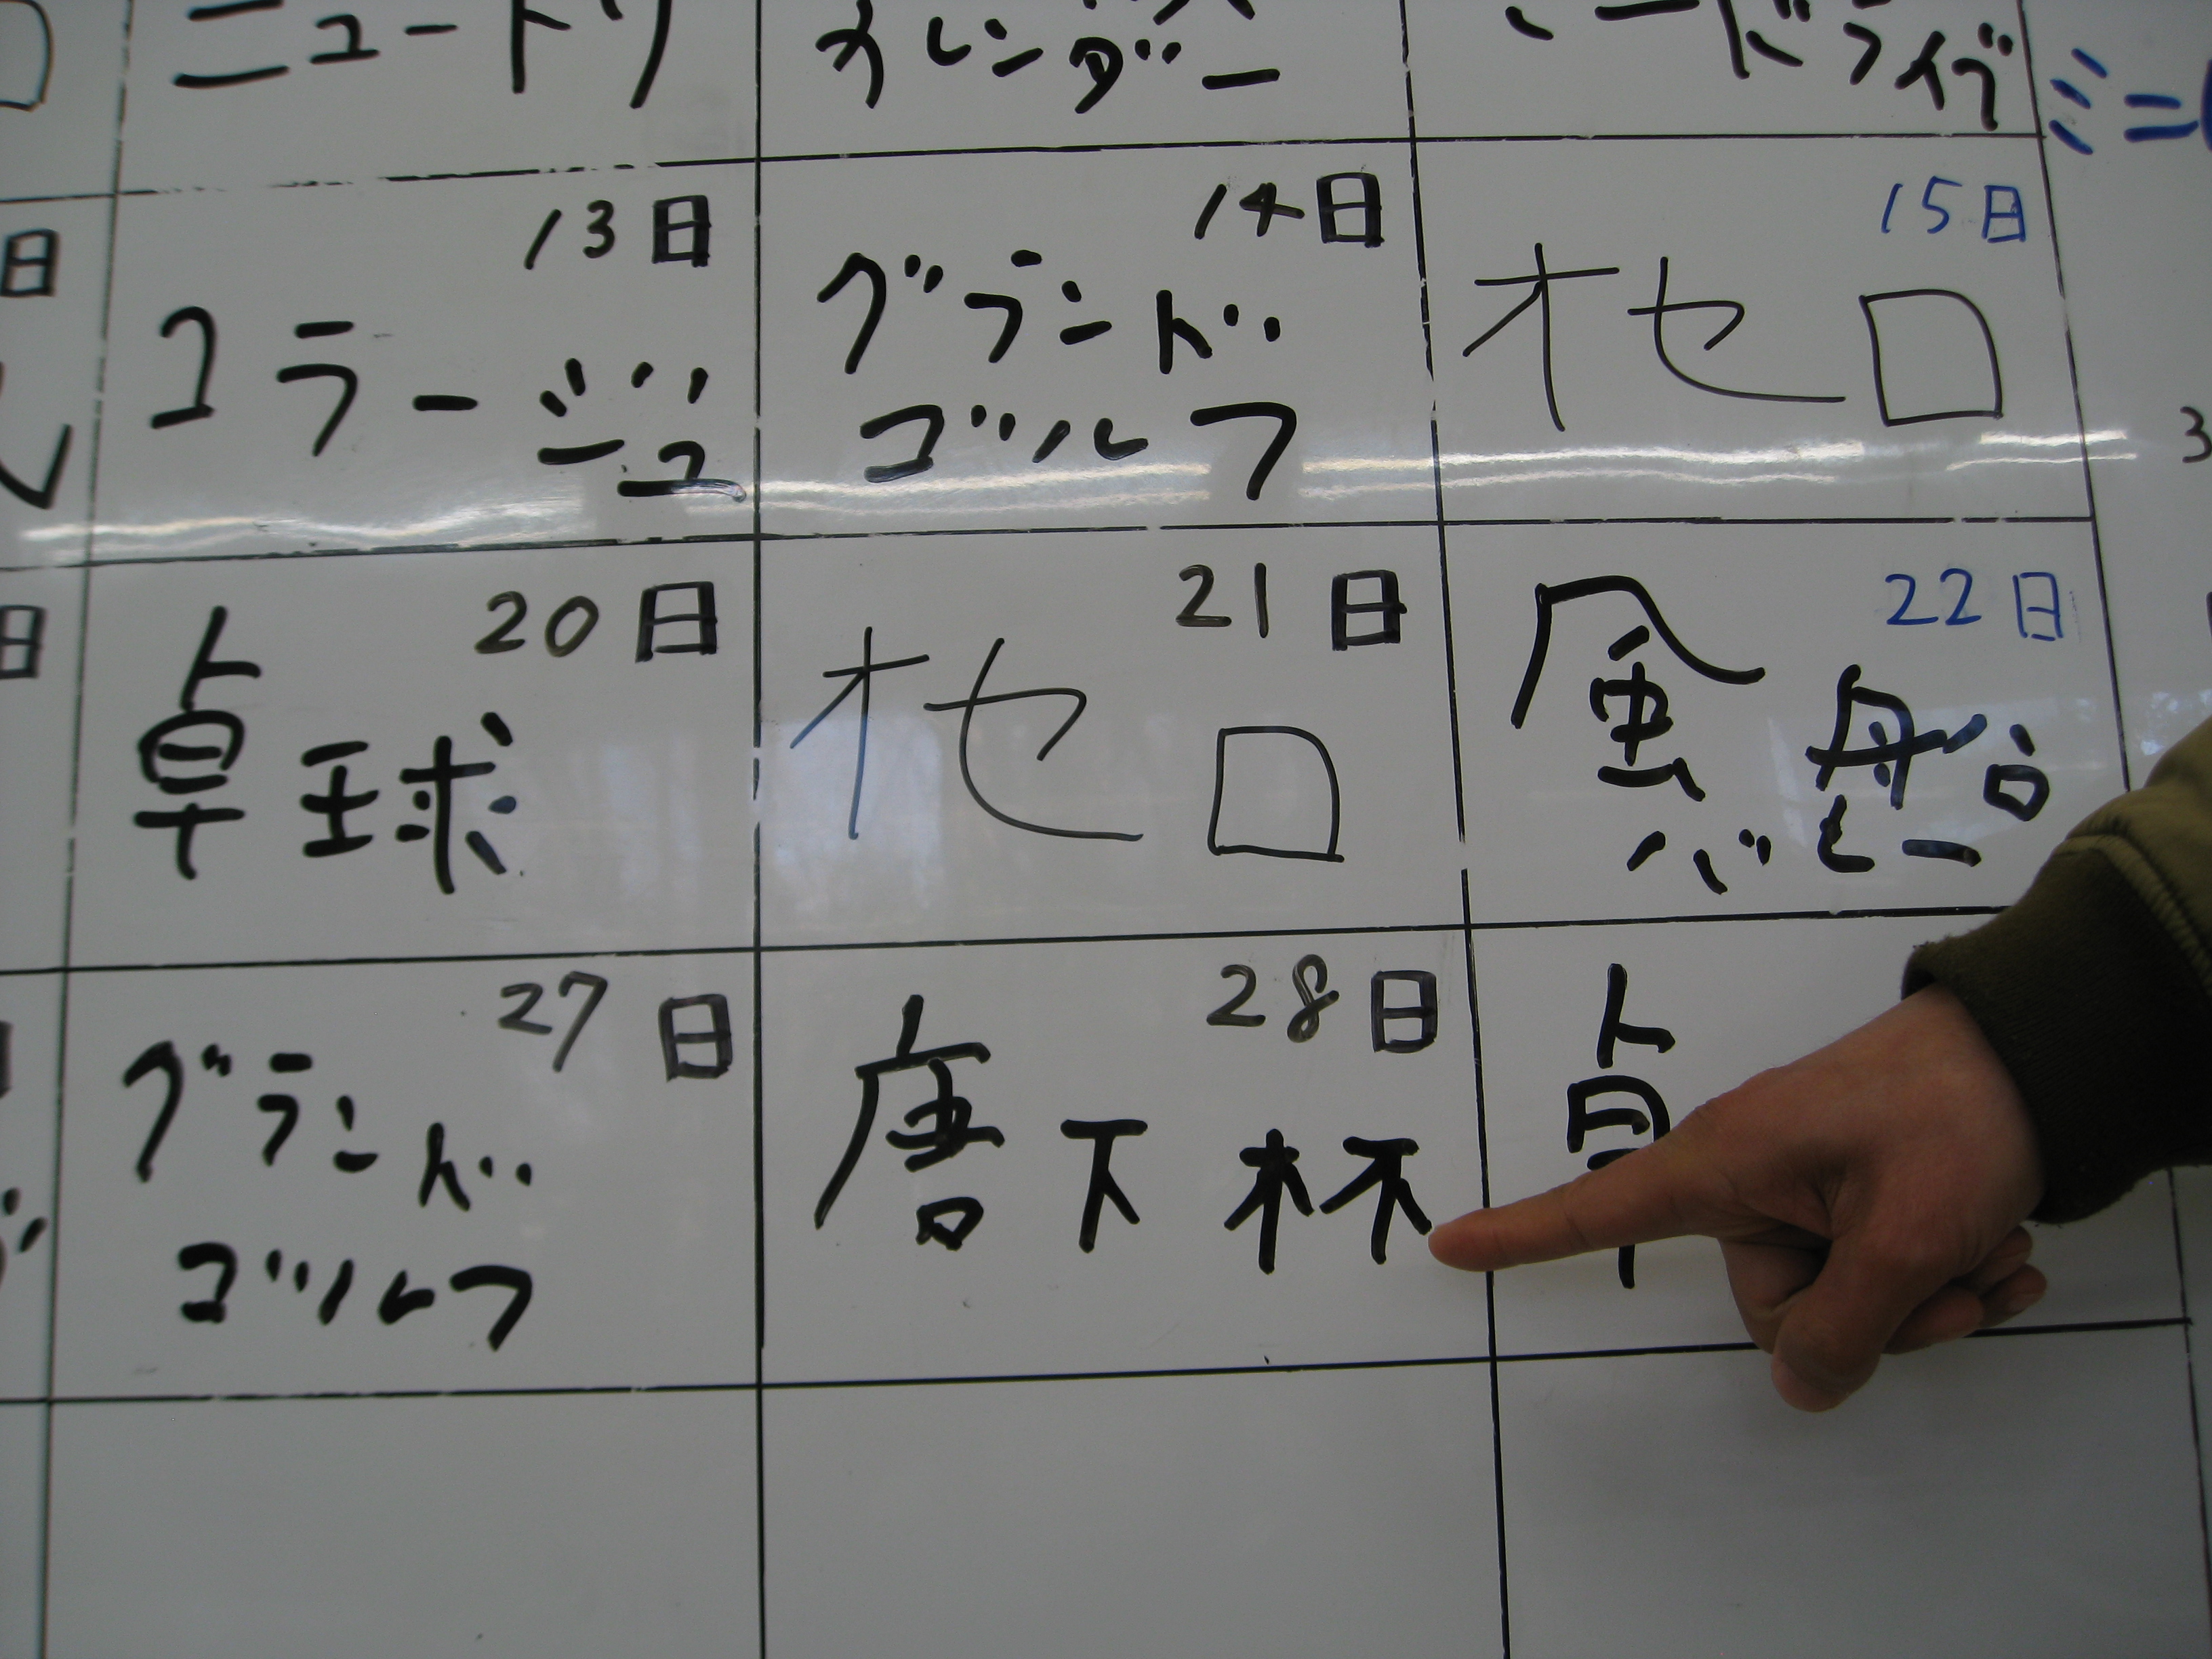 ニュートリ
カレンダー
ードライブ
13日
コラージュ
14日
グランド
ゴルフ
15日
オセロ
20日
卓球
21日
オセロ
22日
風船
バレー
27日
グランド
ゴルフ
28日
唐下杯
卓